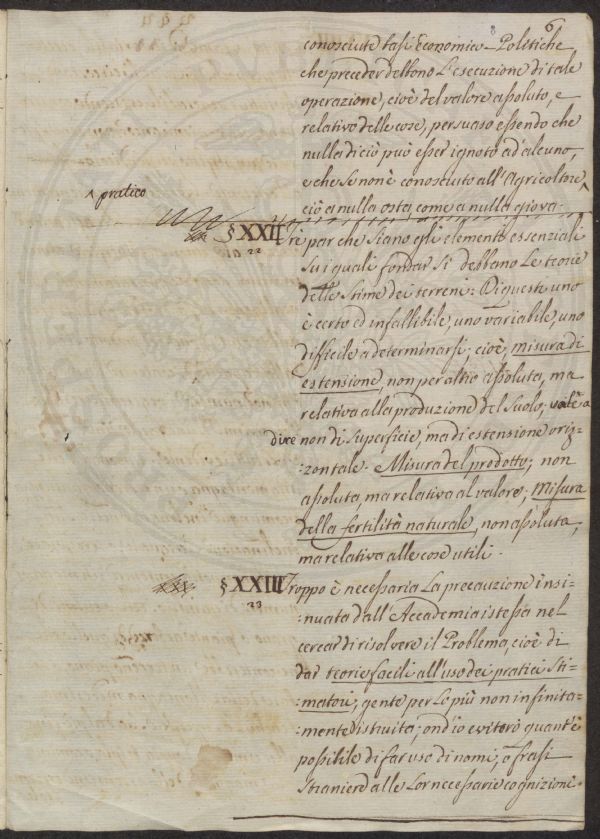 6
8
conosciute basi Economico-Politiche
che preceder debbono L'esecuzione di tale
operazione, cioè del valore assoluto, e
relativo delle cose, persuaso essendo che
nulla di ciò può esser ignoto ad alcuno,
e che se non è conosciuto all'Agricoltore ^
^ pratico
ciò a nulla osta, come a nulla giova.
§ XXII Tre par che siano gli elementi essenziali
22
su i quali fondar si debbano Le teorie
delle stime dei terreni: Di questi uno
è certo ed infallibile, uno variabile, uno
difficile a determinarsi; cioè, misura di
estensione, non per altro assoluta, ma
relativa alla produzione del Suolo; vale a
dire non di Superficie, ma di estensione oriz-
:zontale. Misura del prodotto; non
assoluta, ma relativa al valore; Misura
della fertilità naturale, non assoluta,
ma relativa alle cose utili.
§ XXIII Troppo è necessaria La precauzione insi:
23
:nuata dall'Accademia istessa nel
cercar di risolvere il Problema, cioè di
dar teorie facili all'uso dei pratici Sti:
:matori; gente per lo più non infinita:
:mente istruita; ond'io eviterò quant'è
possibile di far uso di nomi, o frasi
straniere alle Lor necessarie cognizioni.